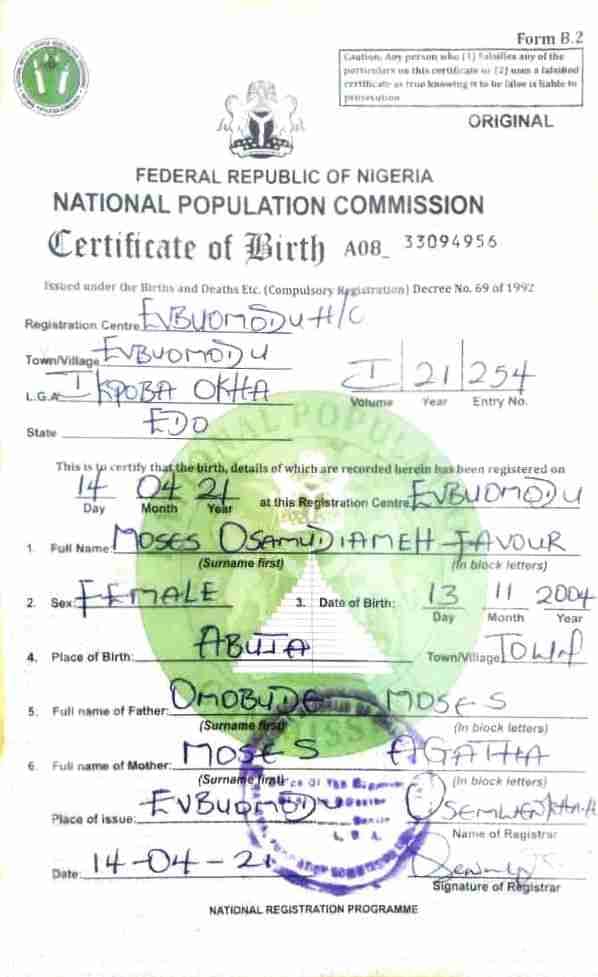 Form B.2
Caution: Any person who (1) falsifies any of the
particulars on this certificate or (2) uses a falsified
certificate as true knowing it to be false is liable to
prosecution
ORIGINAL
FEDERAL REPUBLIC OF NIGERIA
NATIONAL POPULATION COMMISSION
Certificate of Birth A08_ 33094956
Issued under the Births and Deaths Etc. (Compulsory Registration) Decree No. 69 of 1992
Registration Centre EVBUOMODU H/C
Town/Village EVBUOMODU
L.G.A IKPOBA OKHA
I 21 254
Volume Year Entry No.
State EDO
This is to certify that the birth, details of which are recorded herein has been registered on
14 04 21 at this Registration Centre EVBUOMODU
Day Month Year
1. Full Name: MOSES OSAMUDIAMEH FAVOUR
(Surname first) (In block letters)
2. Sex: FEMALE 3. Date of Birth: 13 11 2004
Day Month Year
4. Place of Birth: ABUJA Town/Village TOWN
5. Full name of Father: OMOBUDE MOSES
(Surname first) (In block letters)
6. Full name of Mother: MOSES AGATHA
(Surname first) (In block letters)
Place of issue: EVBUOMODU
Name of Registrar
Date: 14-04-21
Signature of Registrar
NATIONAL REGISTRATION PROGRAMME